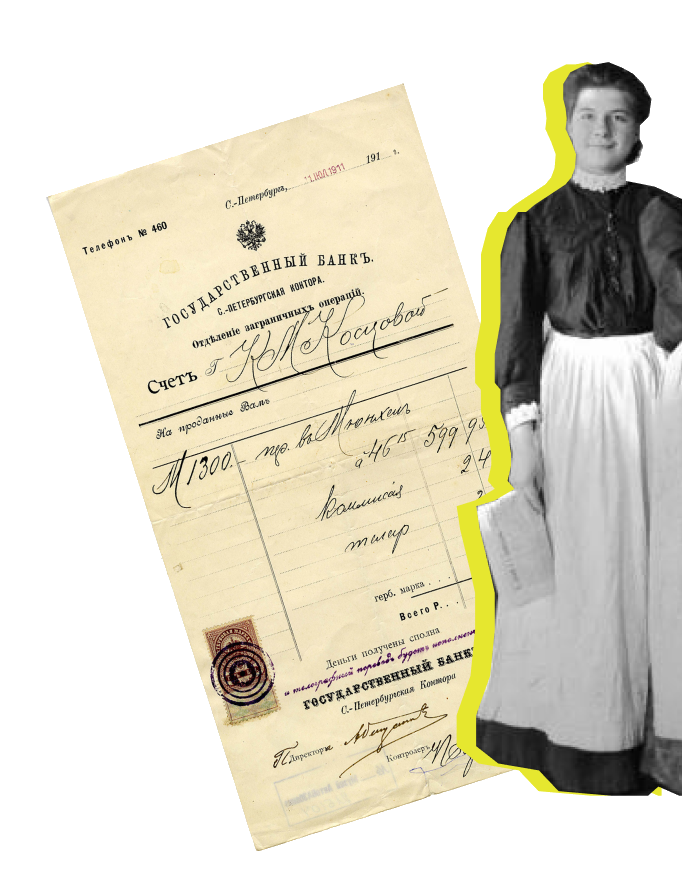 С.-Петербургъ, 11 ІЮЛ 1911 191 г.
Телефонъ № 460
ГОСУДАРСТВЕННЫЙ БАНКЪ.
С.-ПЕТЕРБУРГСКАЯ КОНТОРА.
Отдѣленіе заграничныхъ операцій.
Счетъ Г. К М Косцовой
На проданные Вамъ
М 1300. пер. въ Мюнхенъ
а 46 15 599 95
комиссія 2 4
телегр
герб. марка
Всего Р.
Деньги получены сполна
и телеграфный переводъ будетъ исполненъ
ГОСУДАРСТВЕННЫЙ БАНКЪ
С.-Петербургская Контора
П Директора
Контролеръ